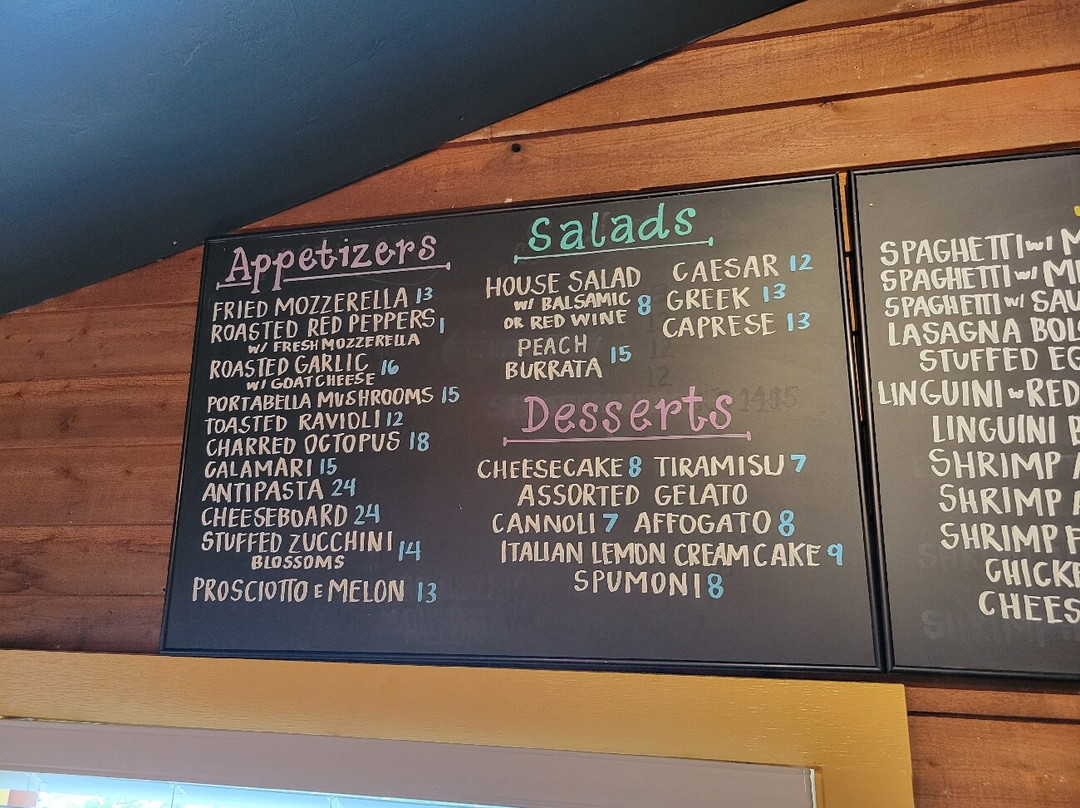 Appetizers
FRIED MOZZERELLA 13
ROASTED RED PEPPERS 1
W/ FRESH MOZZERELLA
ROASTED GARLIC 16
W/ GOAT CHEESE
PORTABELLA MUSHROOMS 15
TOASTED RAVIOLI 12
CHARRED OCTOPUS 18
CALAMARI 15
ANTIPASTA 24
CHEESEBOARD 24
STUFFED ZUCCHINI 14
BLOSSOMS
PROSCIOTTO E MELON 13
Salads
HOUSE SALAD
W/ BALSAMIC 8
OR RED WINE
PEACH
BURRATA 15
CAESAR 12
GREEK 13
CAPRESE 13
Desserts
CHEESECAKE 8 TIRAMISU 7
ASSORTED GELATO
CANNOLI 7 AFFOGATO 8
ITALIAN LEMON CREAM CAKE 9
SPUMONI 8
SPAGHETTI W/ M
SPAGHETTI W/ ME
SPAGHETTI W/ SAU
LASAGNA BOL
STUFFED EG
LINGUINI W RED
LINGUINI
SHRIMP
SHRIMP
SHRIMP F
CHICKE
CHEES